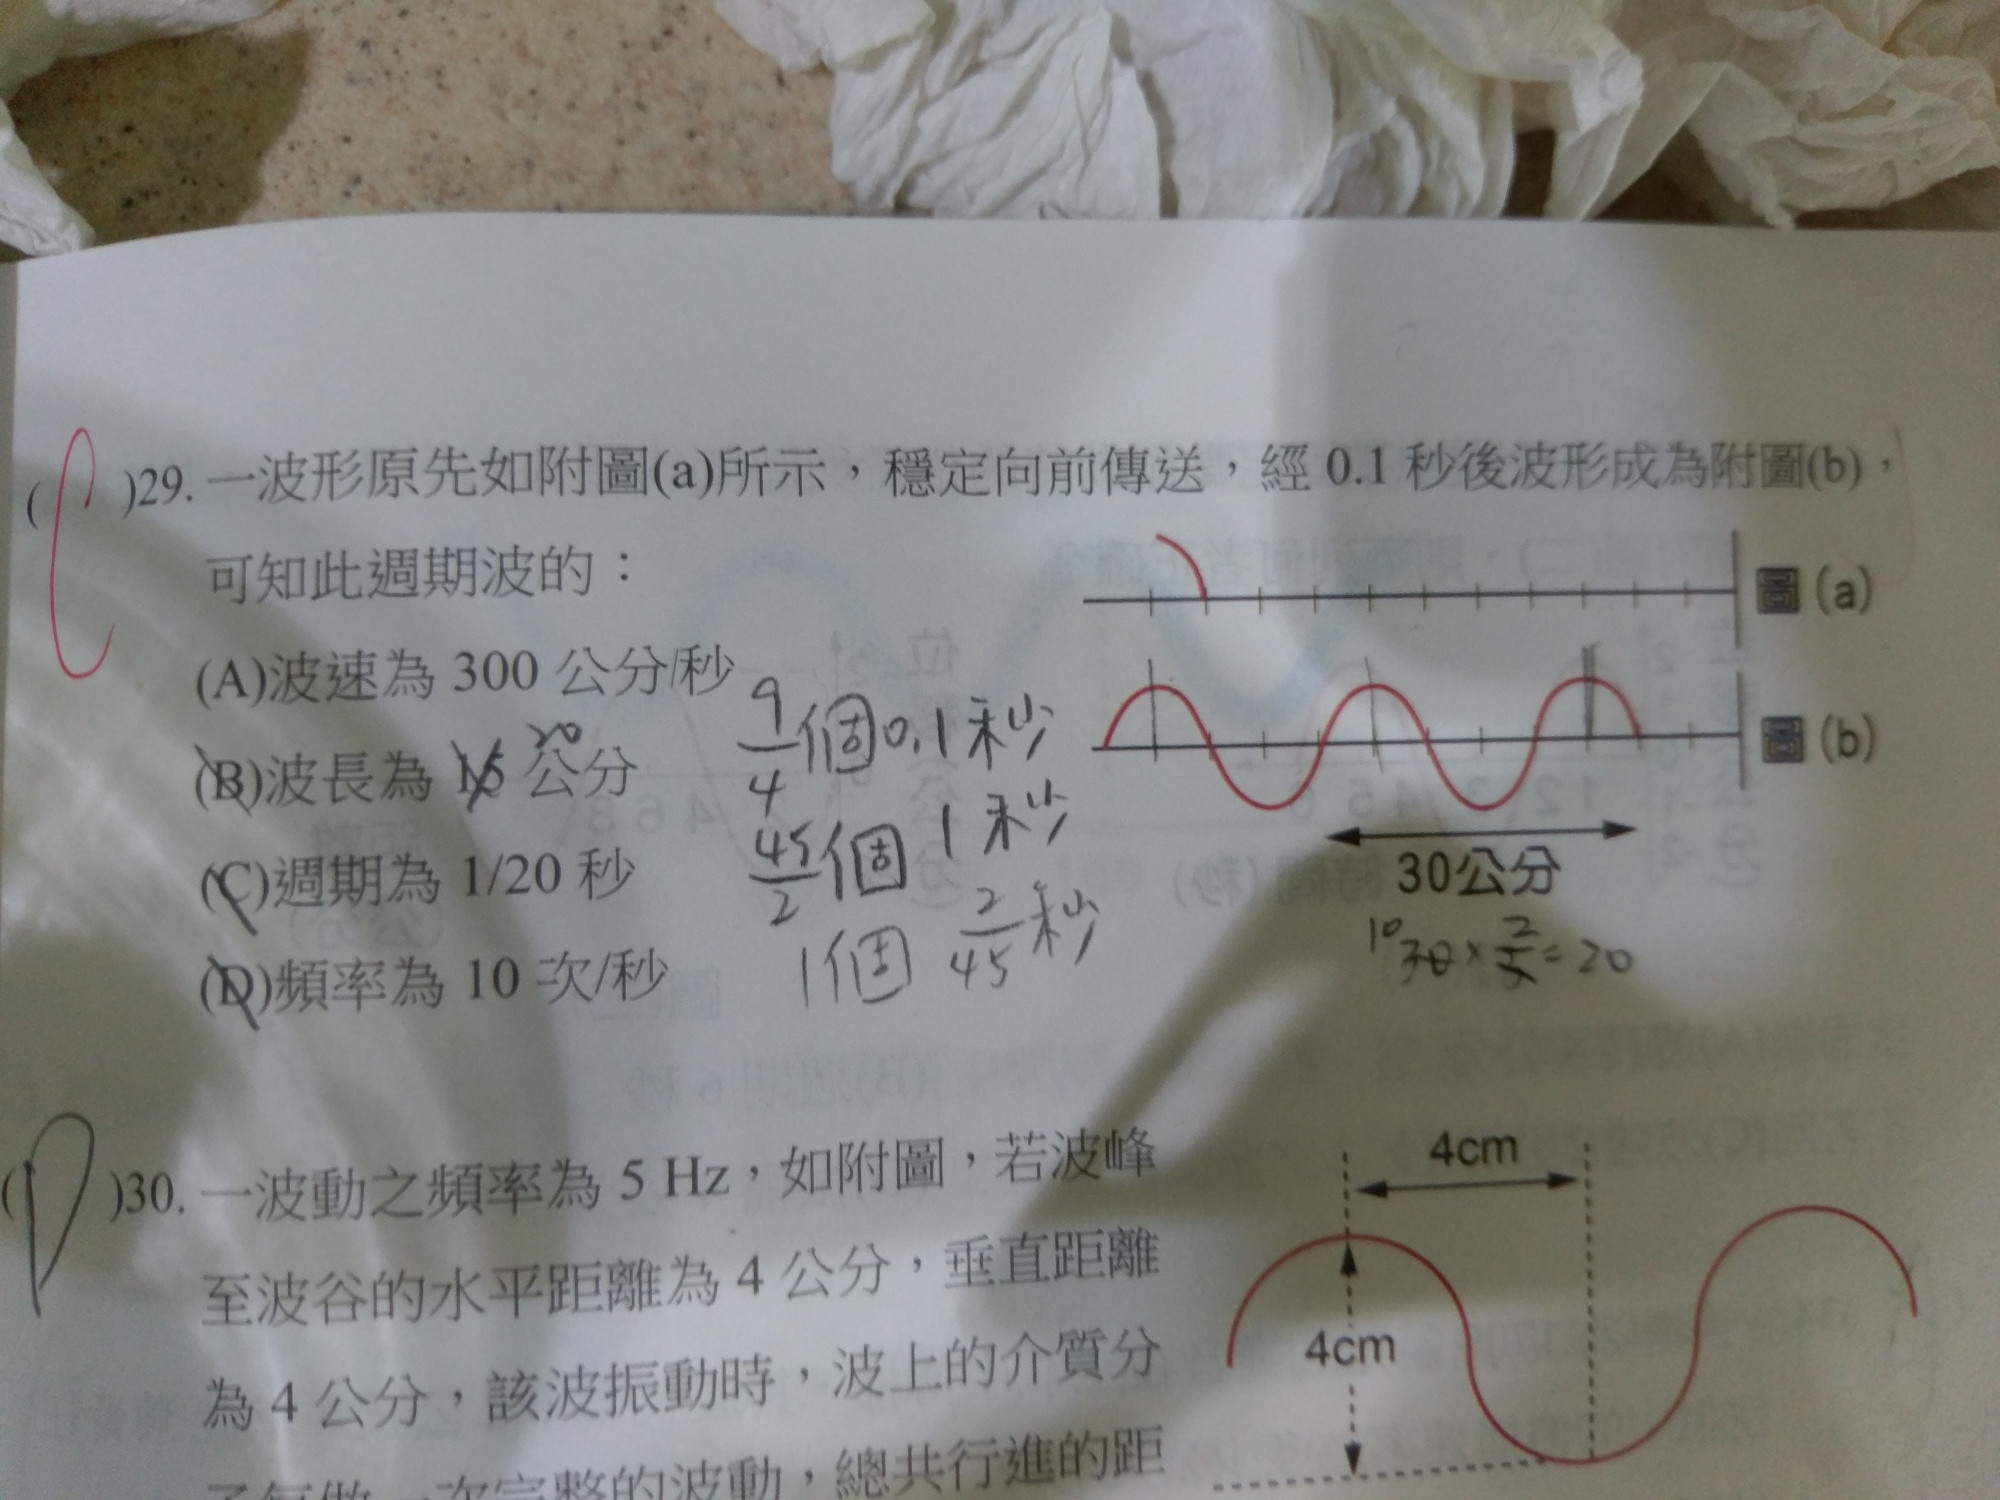 (C)29. 一波形原先如附圖(a)所示，穩定向前傳送，經 0.1 秒後波形成為附圖(b)，
可知此週期波的：
圖(a)
(A)波速為 300 公分/秒
圖(b)
(B)波長為 15 公分
20
(C)週期為 1/20 秒
(D)頻率為 10 次/秒
9/4個0.1秒
45/2個 1秒
1個 2/45秒
30公分
10 30×2/3=20
(D)30. 一波動之頻率為 5 Hz，如附圖，若波峰
至波谷的水平距離為 4 公分，垂直距離
為 4 公分，該波振動時，波上的介質分
子每做一次完整的波動，總共行進的距
4cm
4cm